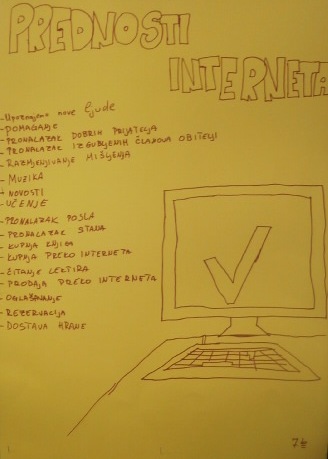 PREDNOSTI
INTERNETA
-Upoznajemo nove ljude
-POMAGANJE
-PRONALAZAK DOBRIH PRIJATELJA
-PRONALAZAK IZGUBLJENIH ČLANOVA OBITELJI
-RAZMJENJIVANJE MIŠLJENJA
-MUZIKA
-NOVOSTI
-UČENJE
-PRONALAZAK POSLA
-PRONALAZAK STANA
-KUPNJA KNJIGA
-KUPNJA PREKO INTERNETA
-ČITANJE LEKTIRA
-PRODAJA PREKO INTERNETA
-OGLAŠAVANJE
-REZERVACIJA
-DOSTAVA HRANE